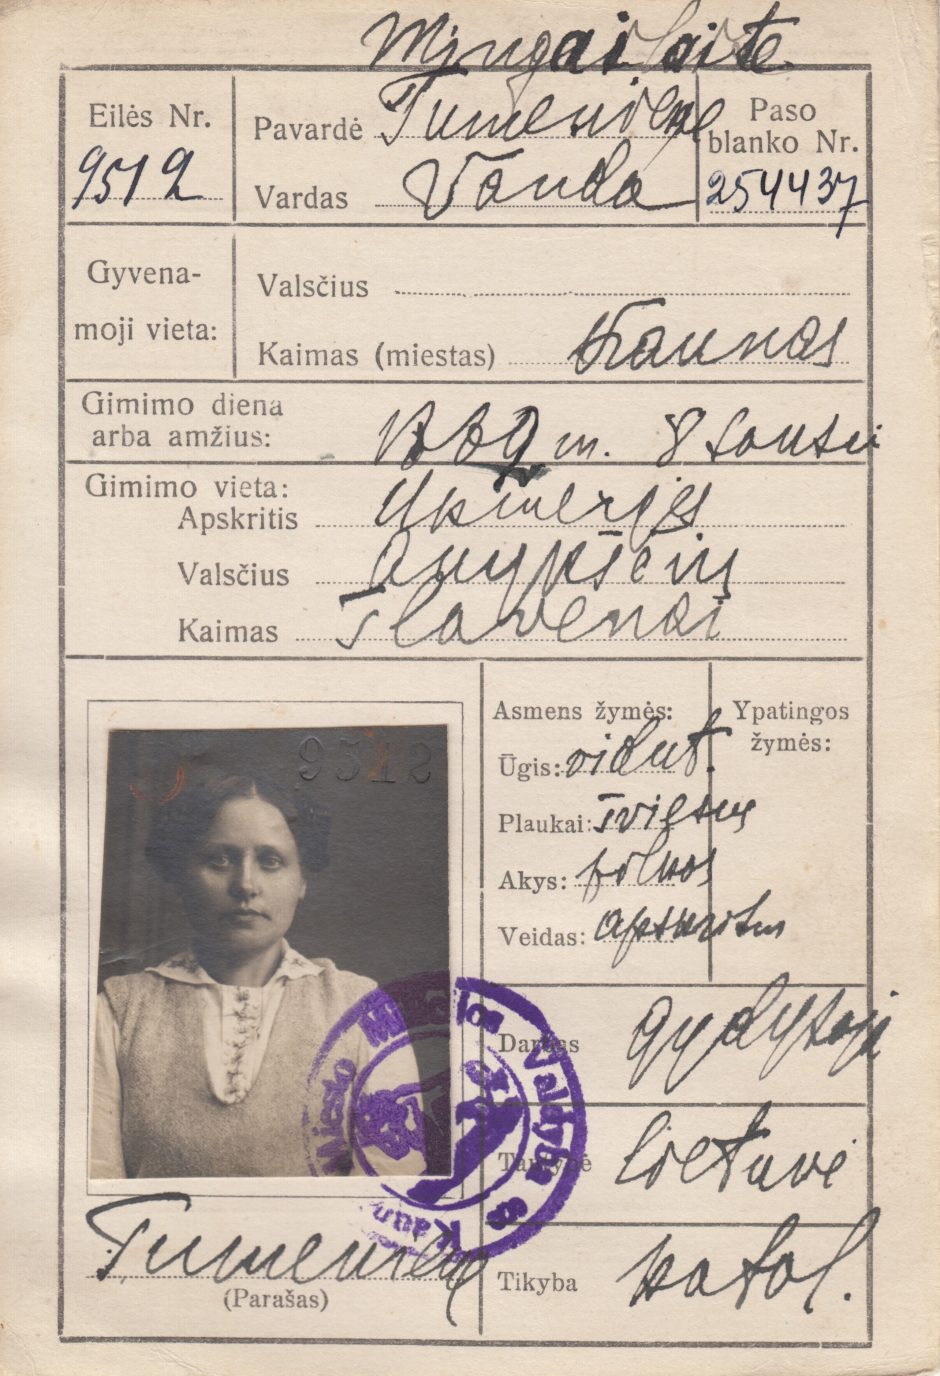 Mingailaitė
Eilės Nr.
9512
Pavardė Tumėnienė
Vardas Vanda
Paso
blanko Nr.
254437
Gyvena-
moji vieta:
Valsčius
Kaimas (miestas) Kaunas
Gimimo diena
arba amžius: 1882 m. 8 sausi
Gimimo vieta:
Apskritis Ukmergės
Valsčius Anykščių
Kaimas Šlavėnai
9512
Asmens žymės:
Ūgis: vidut.
Plaukai: šviesūs
Akys: pilkos
Veidas: apskritas
Ypatingos
žymės:
Darbas gydytoja
Tautybė lietuvė
Tikyba katol.
Miesto Valdyba Kaun
Tumėnienė
(Parašas)